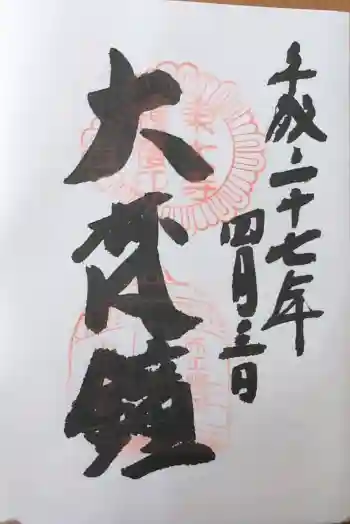 平成二十七年
四月三日
大梵鐘